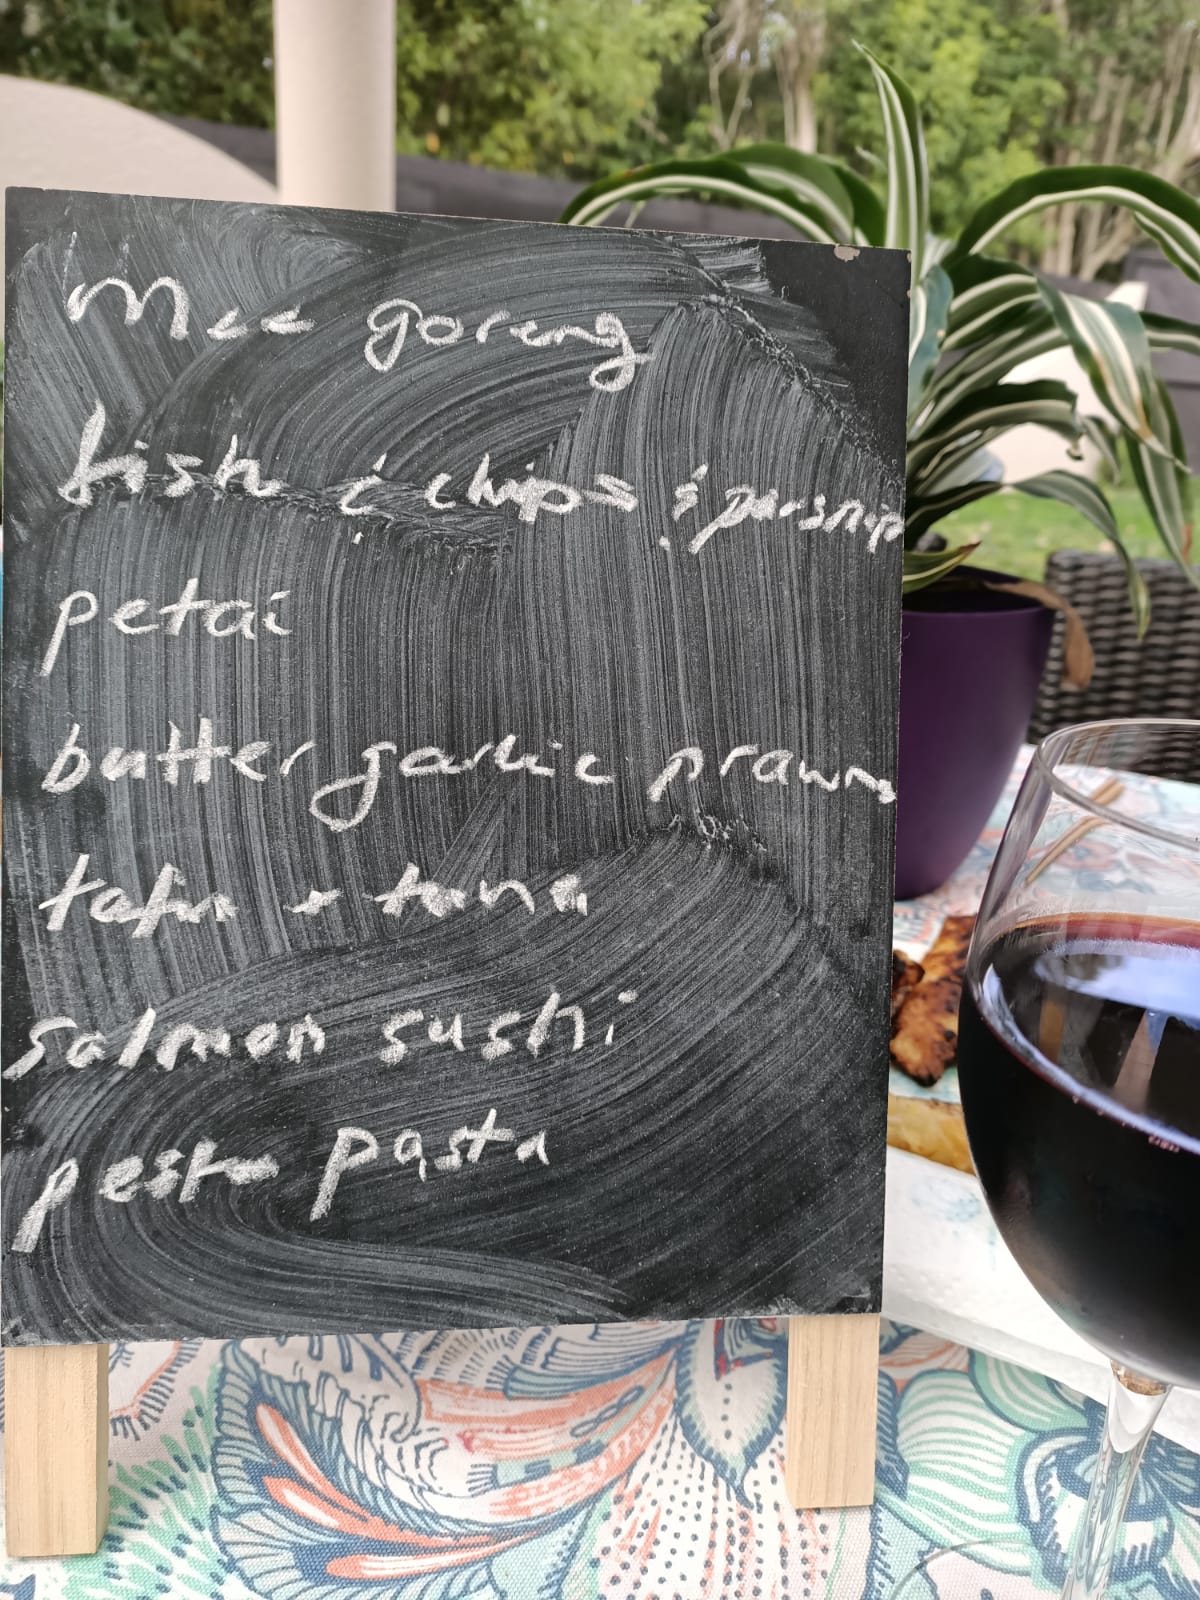 Mee goreng
fish & chips & parsnip
petai
butter garlic prawns
tofu + tuna
salmon sushi
pesto pasta